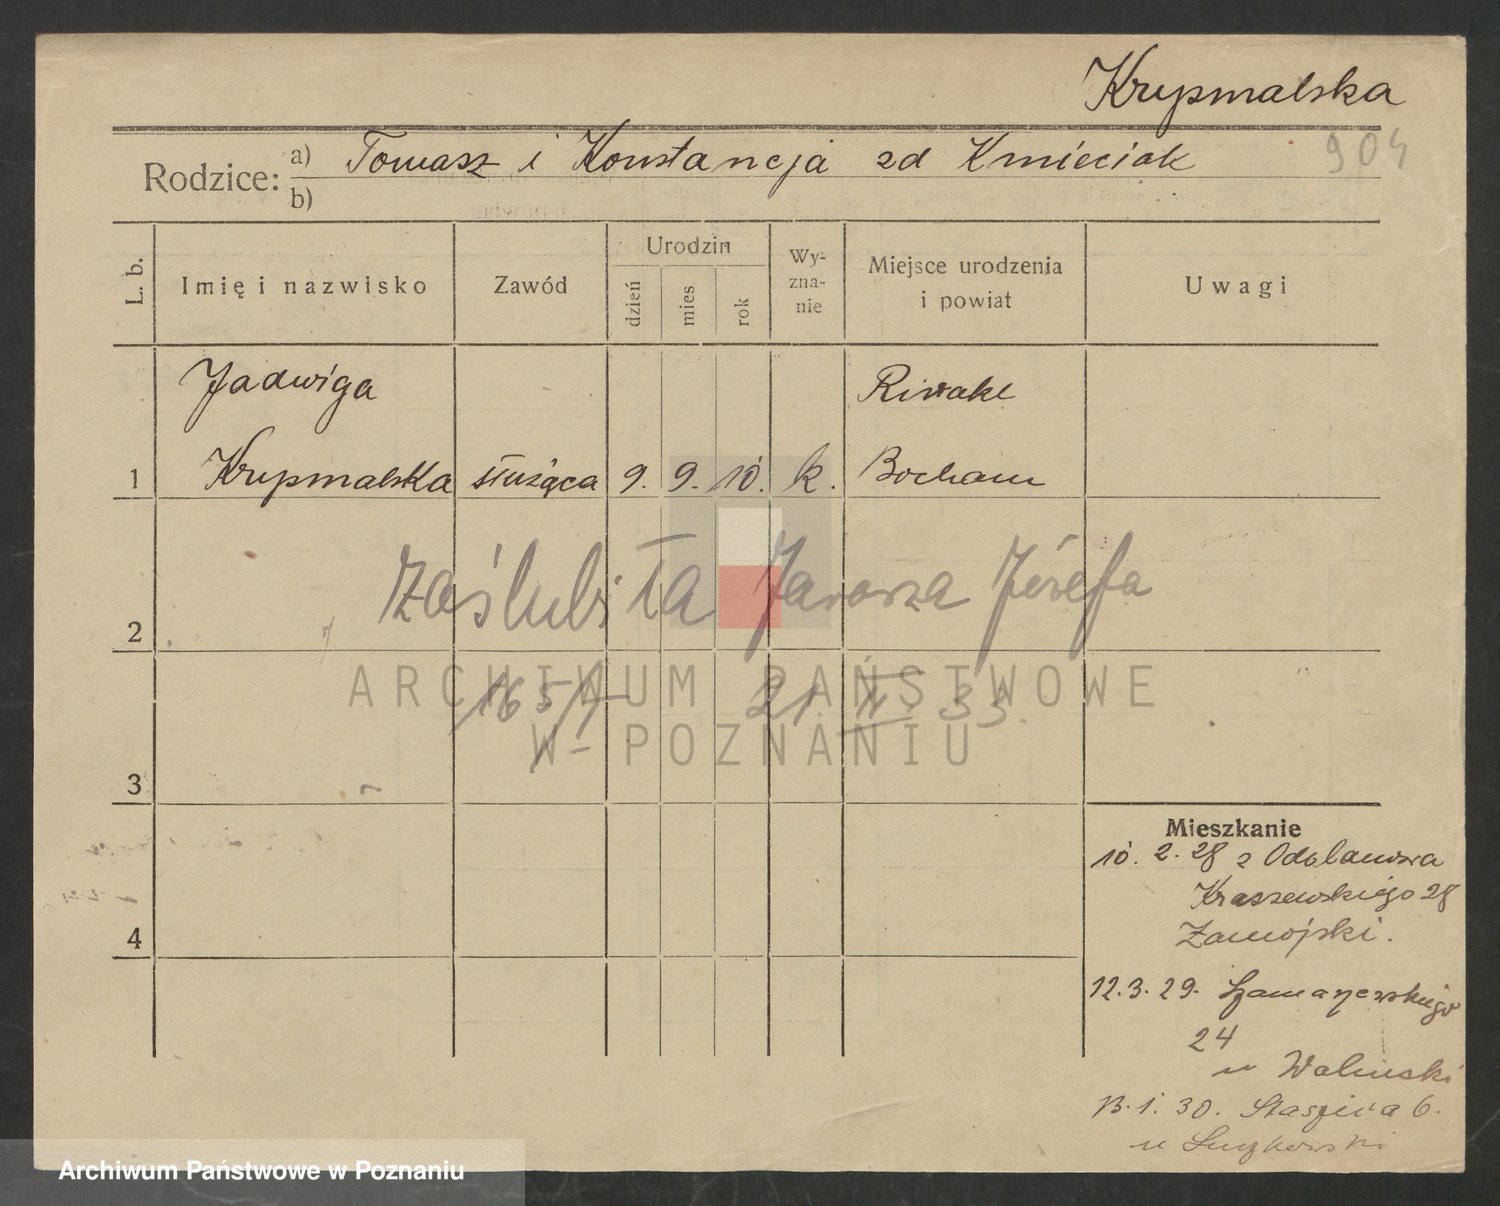 Krypmalska
904
Rodzice: a) Tomasz i Konstancja zd Kmieciak
b)
L. b. Imię i nazwisko Zawód Urodzin dzień mies rok Wy-zna-nie Miejsce urodzenia i powiat Uwagi
Jadwiga
1 Krypmalska służąca 9. 9. 10. k. Bochum
Zaślubiła Jarosza Józefa
2
165/I 21. II. 33.
ARCHIWUM PAŃSTWOWE
W POZNANIU
3
Mieszkanie
10. 2. 28 z Odolanowa
Kraszewskiego 28
Zamojski.
4
12. 3. 29. Szamarzewskiego
24
u Woliński
13. 1. 30. Staszica 6.
u
Archiwum Państwowe w Poznaniu